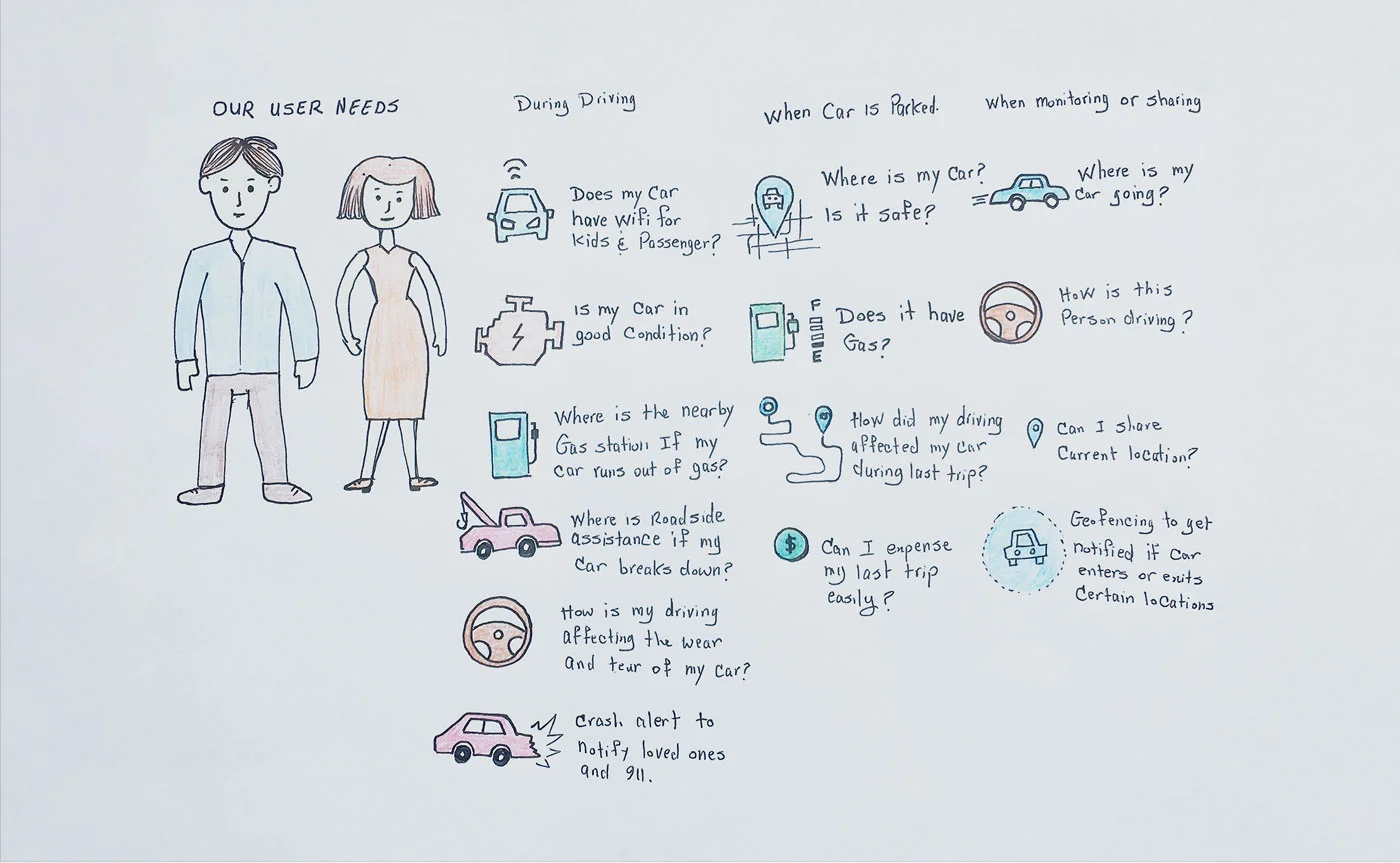 OUR USER NEEDS
During Driving
Does my Car
have wifi for
kids & Passenger?
Is my car in
good Condition?
Where is the nearby
Gas station If my
car runs out of gas?
Where is Roadside
assistance if my
Car breaks down?
How is my driving
affecting the wear
and tear of my car?
Crash alert to
notify loved ones
and 911.
When Car is Parked.
Where is my Car?
Is it safe?
F
E
Does it have
Gas?
How did my driving
affected my car
during last trip?
$
Can I expense
my last trip
easily?
When monitoring or sharing
Where is my
Car going?
How is this
Person driving?
Can I share
Current location?
Geofencing to get
notified if car
enters or exits
Certain locations